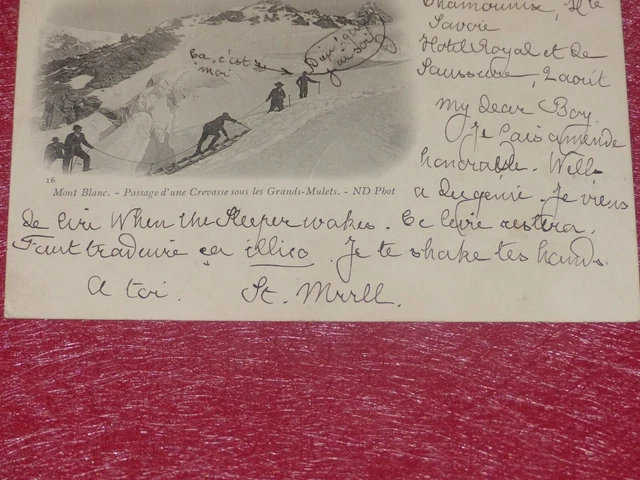 Chamounix, Hte
Savoie
Hotel Royal et de
Saussure, 2 août
My dear Boy.
Je fais amende
honorable. Wells
a du génie. Je viens
de lire When the Sleeper wakes. Ce livre restera.
Faut traduire ça illico. Je te shake tes hands.
A toi.
Ça, c'est
moi
j'ai soif
16
Mont Blanc. - Passage d'une Crevasse sous les Grands-Mulets. - ND Phot